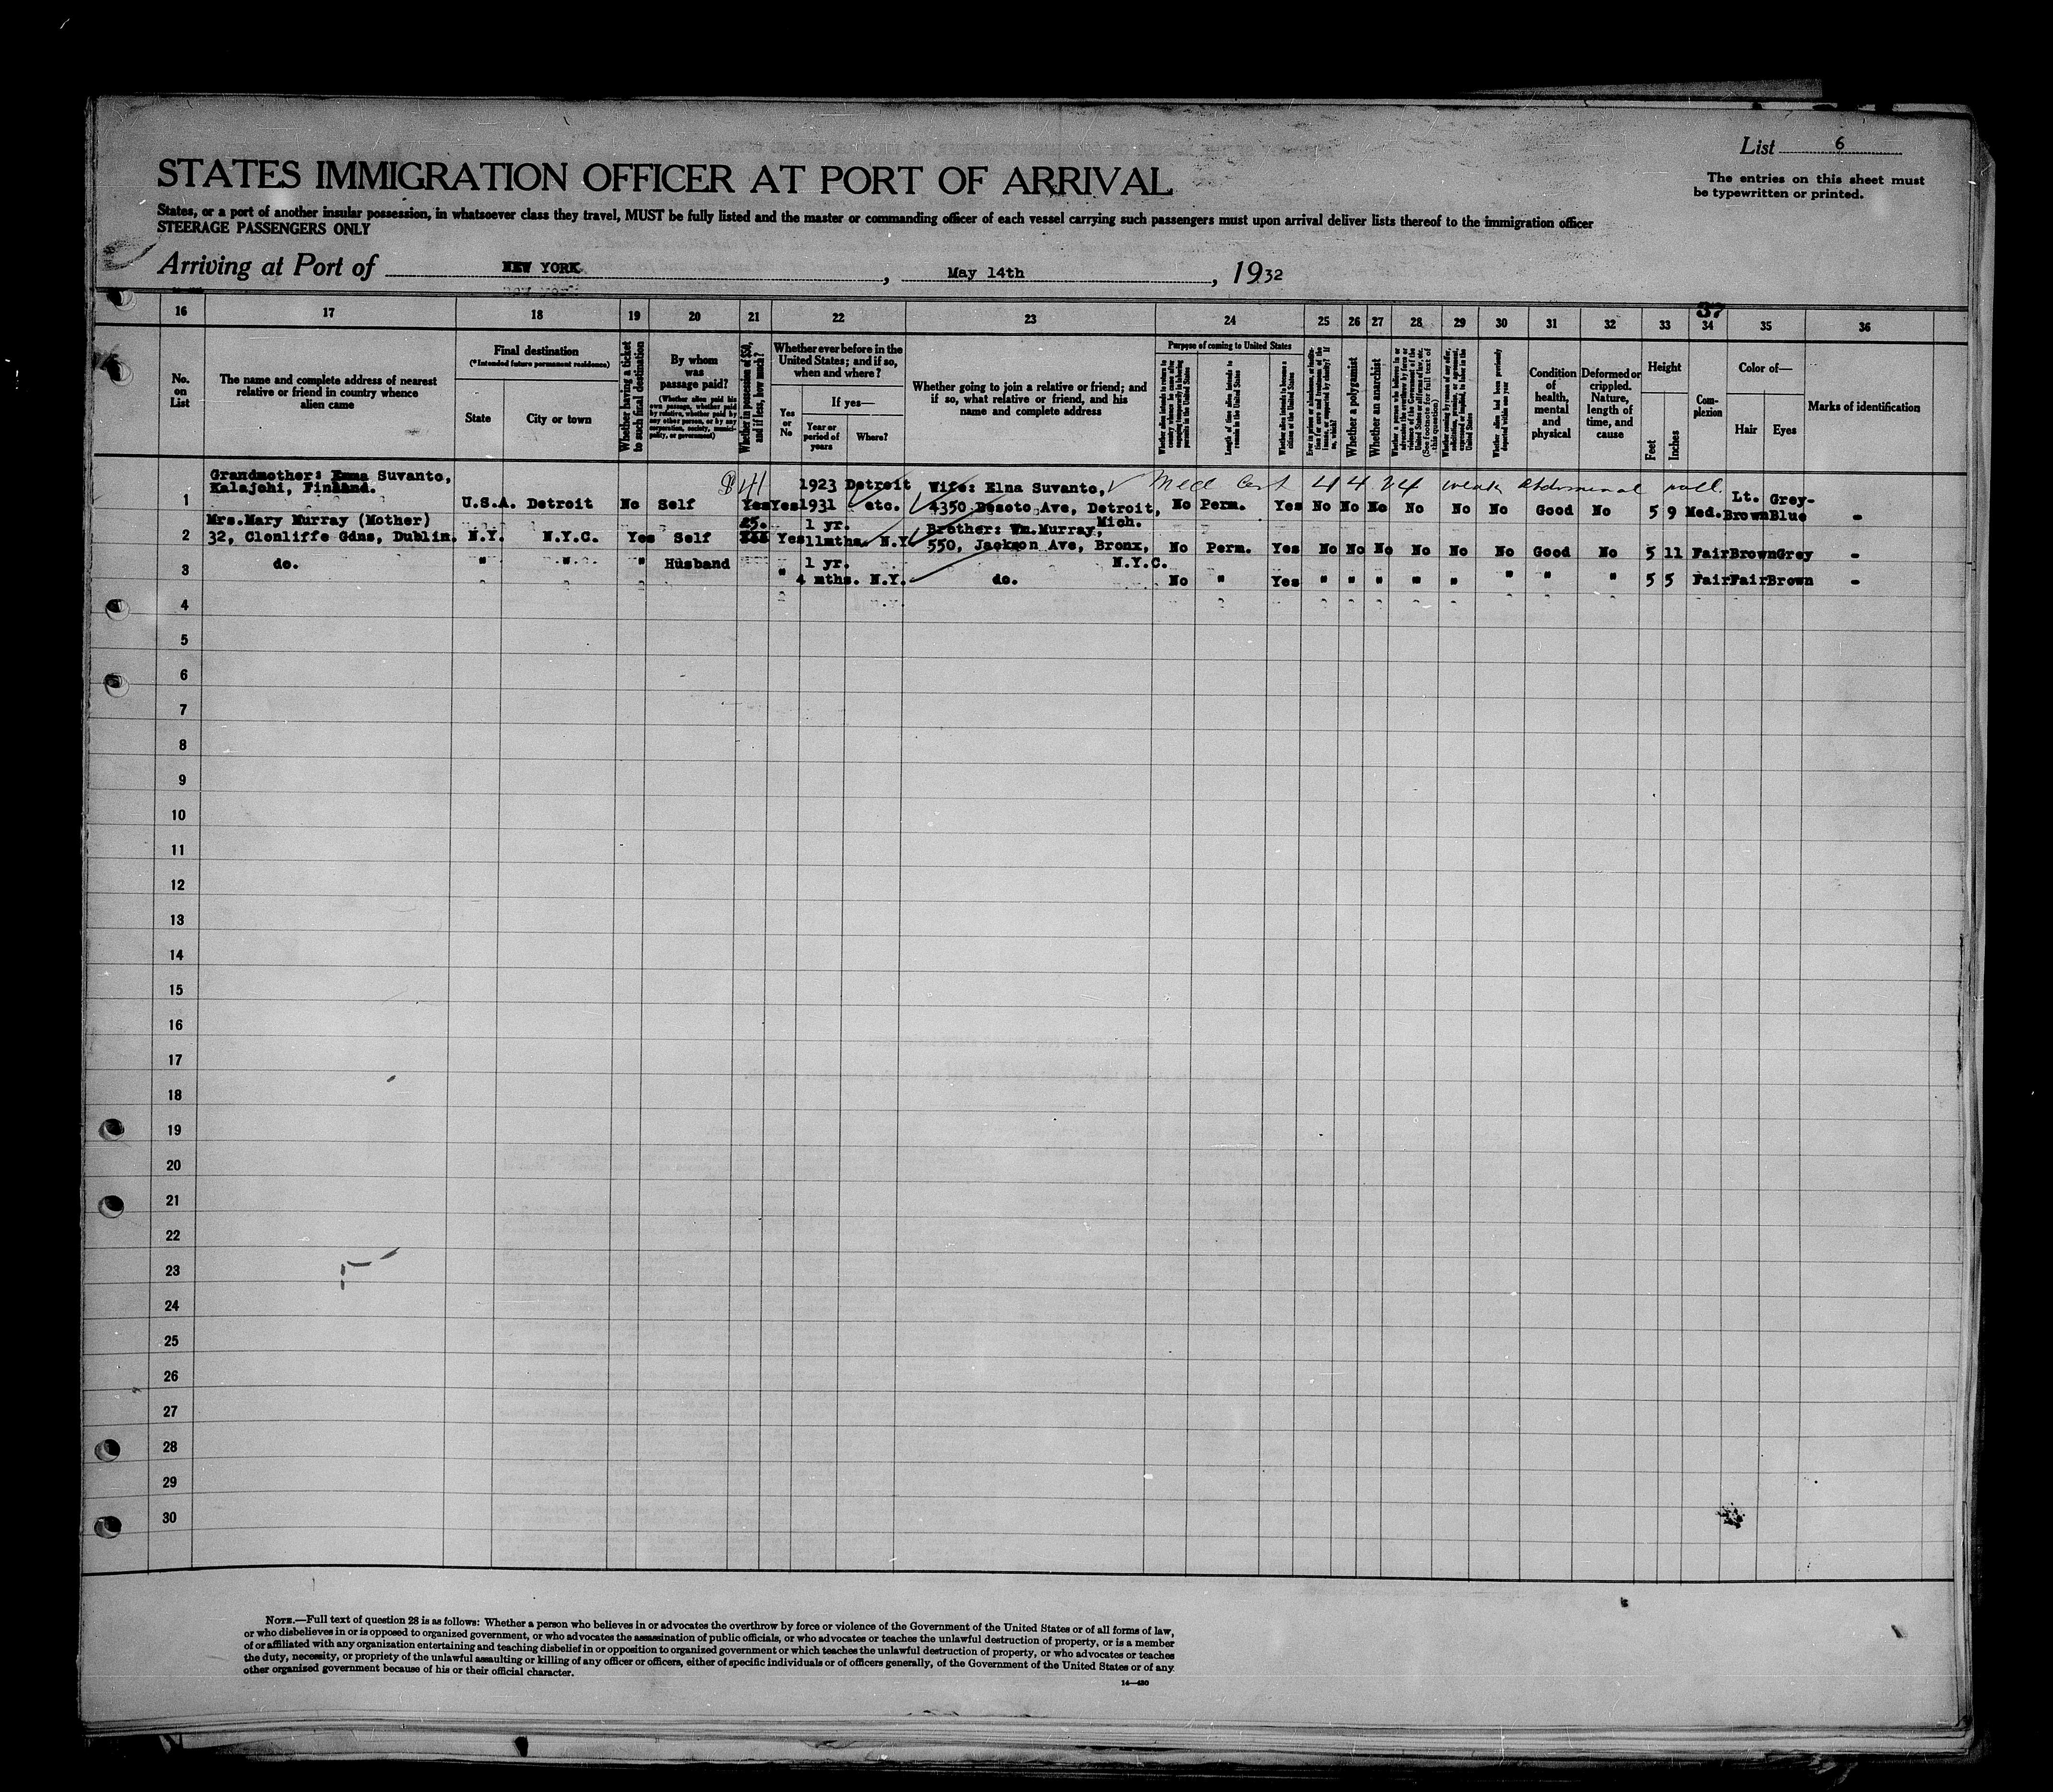 List 6
The entries on this sheet must
be typewritten or printed.
STATES IMMIGRATION OFFICER AT PORT OF ARRIVAL
States, or a port of another insular possession, in whatsoever class they travel, MUST be fully listed and the master or commanding officer of each vessel carrying such passengers must upon arrival deliver lists thereof to the immigration officer
STEERAGE PASSENGERS ONLY
Arriving at Port of NEW YORK, May 14th, 1932
37
16 17 18 19 20 21 22 23 24 25 26 27 28 29 30 31 32 33 34 35 36
No. on List
The name and complete address of nearest
relative or friend in country whence
alien came
Final destination
(*Intended future permanent residence)
State
City or town
Whether having a ticket
to such final destination
By whom
was
passage paid?
(Whether alien paid his
own passage, whether paid
by relative, whether paid by
any other person, or by any
corporation, society, munici-
pality, or government)
Whether in possession of $50,
and if less, how much?
Whether ever before in the
United States; and if so,
when and where?
Yes
or
No
If yes—
Year or
period of
years
Where?
Whether going to join a relative or friend; and
if so, what relative or friend, and his
name and complete address
Purpose of coming to United States
Whether alien intends to return to
country whence he came after
engaging temporarily in laboring
pursuits in the United States
Length of time alien intends to
remain in the United States
Whether alien intends to become a
citizen of the United States
Ever in prison or almshouse, or institu-
tion for care and treatment of the
insane, or supported by charity? If
so, which?
Whether a polygamist
Whether an anarchist
Whether a person who believes in or
advocates the overthrow by force or
violence of the Government of the
United States or all forms of law, etc.
(See footnote for full text of
this question)
Whether coming by reason of any offer,
solicitation, promise, or agreement,
expressed or implied, to labor in the
United States
Whether alien had been previously
deported within one year
Condition
of
health,
mental
and
physical
Deformed or
crippled.
Nature,
length of
time, and
cause
Height
Feet
Inches
Com-
plexion
Color of—
Hair
Eyes
Marks of identification
Grandmother: Emma Suvanto, $41 1923 Detroit Wife: Elna Suvanto, Med Cert weak abdominal wall Lt. Grey-
1 Kalajohi, Finland. U.S.A. Detroit No Self Yes Yes 1931 etc. 4350 Desoto Ave, Detroit, No Perm. Yes No No No No No No Good No 5 9 Med. Brown Blue -
Mich.
Mrs.Mary Murray (Mother) £5. 1 yr. Brother: Wm.Murray,
2 32, Clonliffe Gdns, Dublin. N.Y. N.Y.C. Yes Self Yes 11mths. N.Y. 550, Jackson Ave, Bronx, No Perm. Yes No No No No No No Good No 5 11 Fair Brown Grey -
N.Y.C.
3 do. " " " Husband " 1 yr.
4 mths. N.Y. do. No " Yes " " " " " " " " 5 5 Fair Fair Brown -
4
5
6
7
8
9
10
11
12
13
14
15
16
17
18
19
20
21
22
23
24
25
26
27
28
29
30
NOTE.—Full text of question 28 is as follows: Whether a person who believes in or advocates the overthrow by force or violence of the Government of the United States or of all forms of law,
or who disbelieves in or is opposed to organized government, or who advocates the assassination of public officials, or who advocates or teaches the unlawful destruction of property, or is a member
of or affiliated with any organization entertaining and teaching disbelief in or opposition to organized government or which teaches the unlawful destruction of property, or who advocates or teaches
the duty, necessity, or propriety of the unlawful assaulting or killing of any officer or officers, either of specific individuals or of officers generally, of the Government of the United States or of any
other organized government because of his or their official character.
14—430